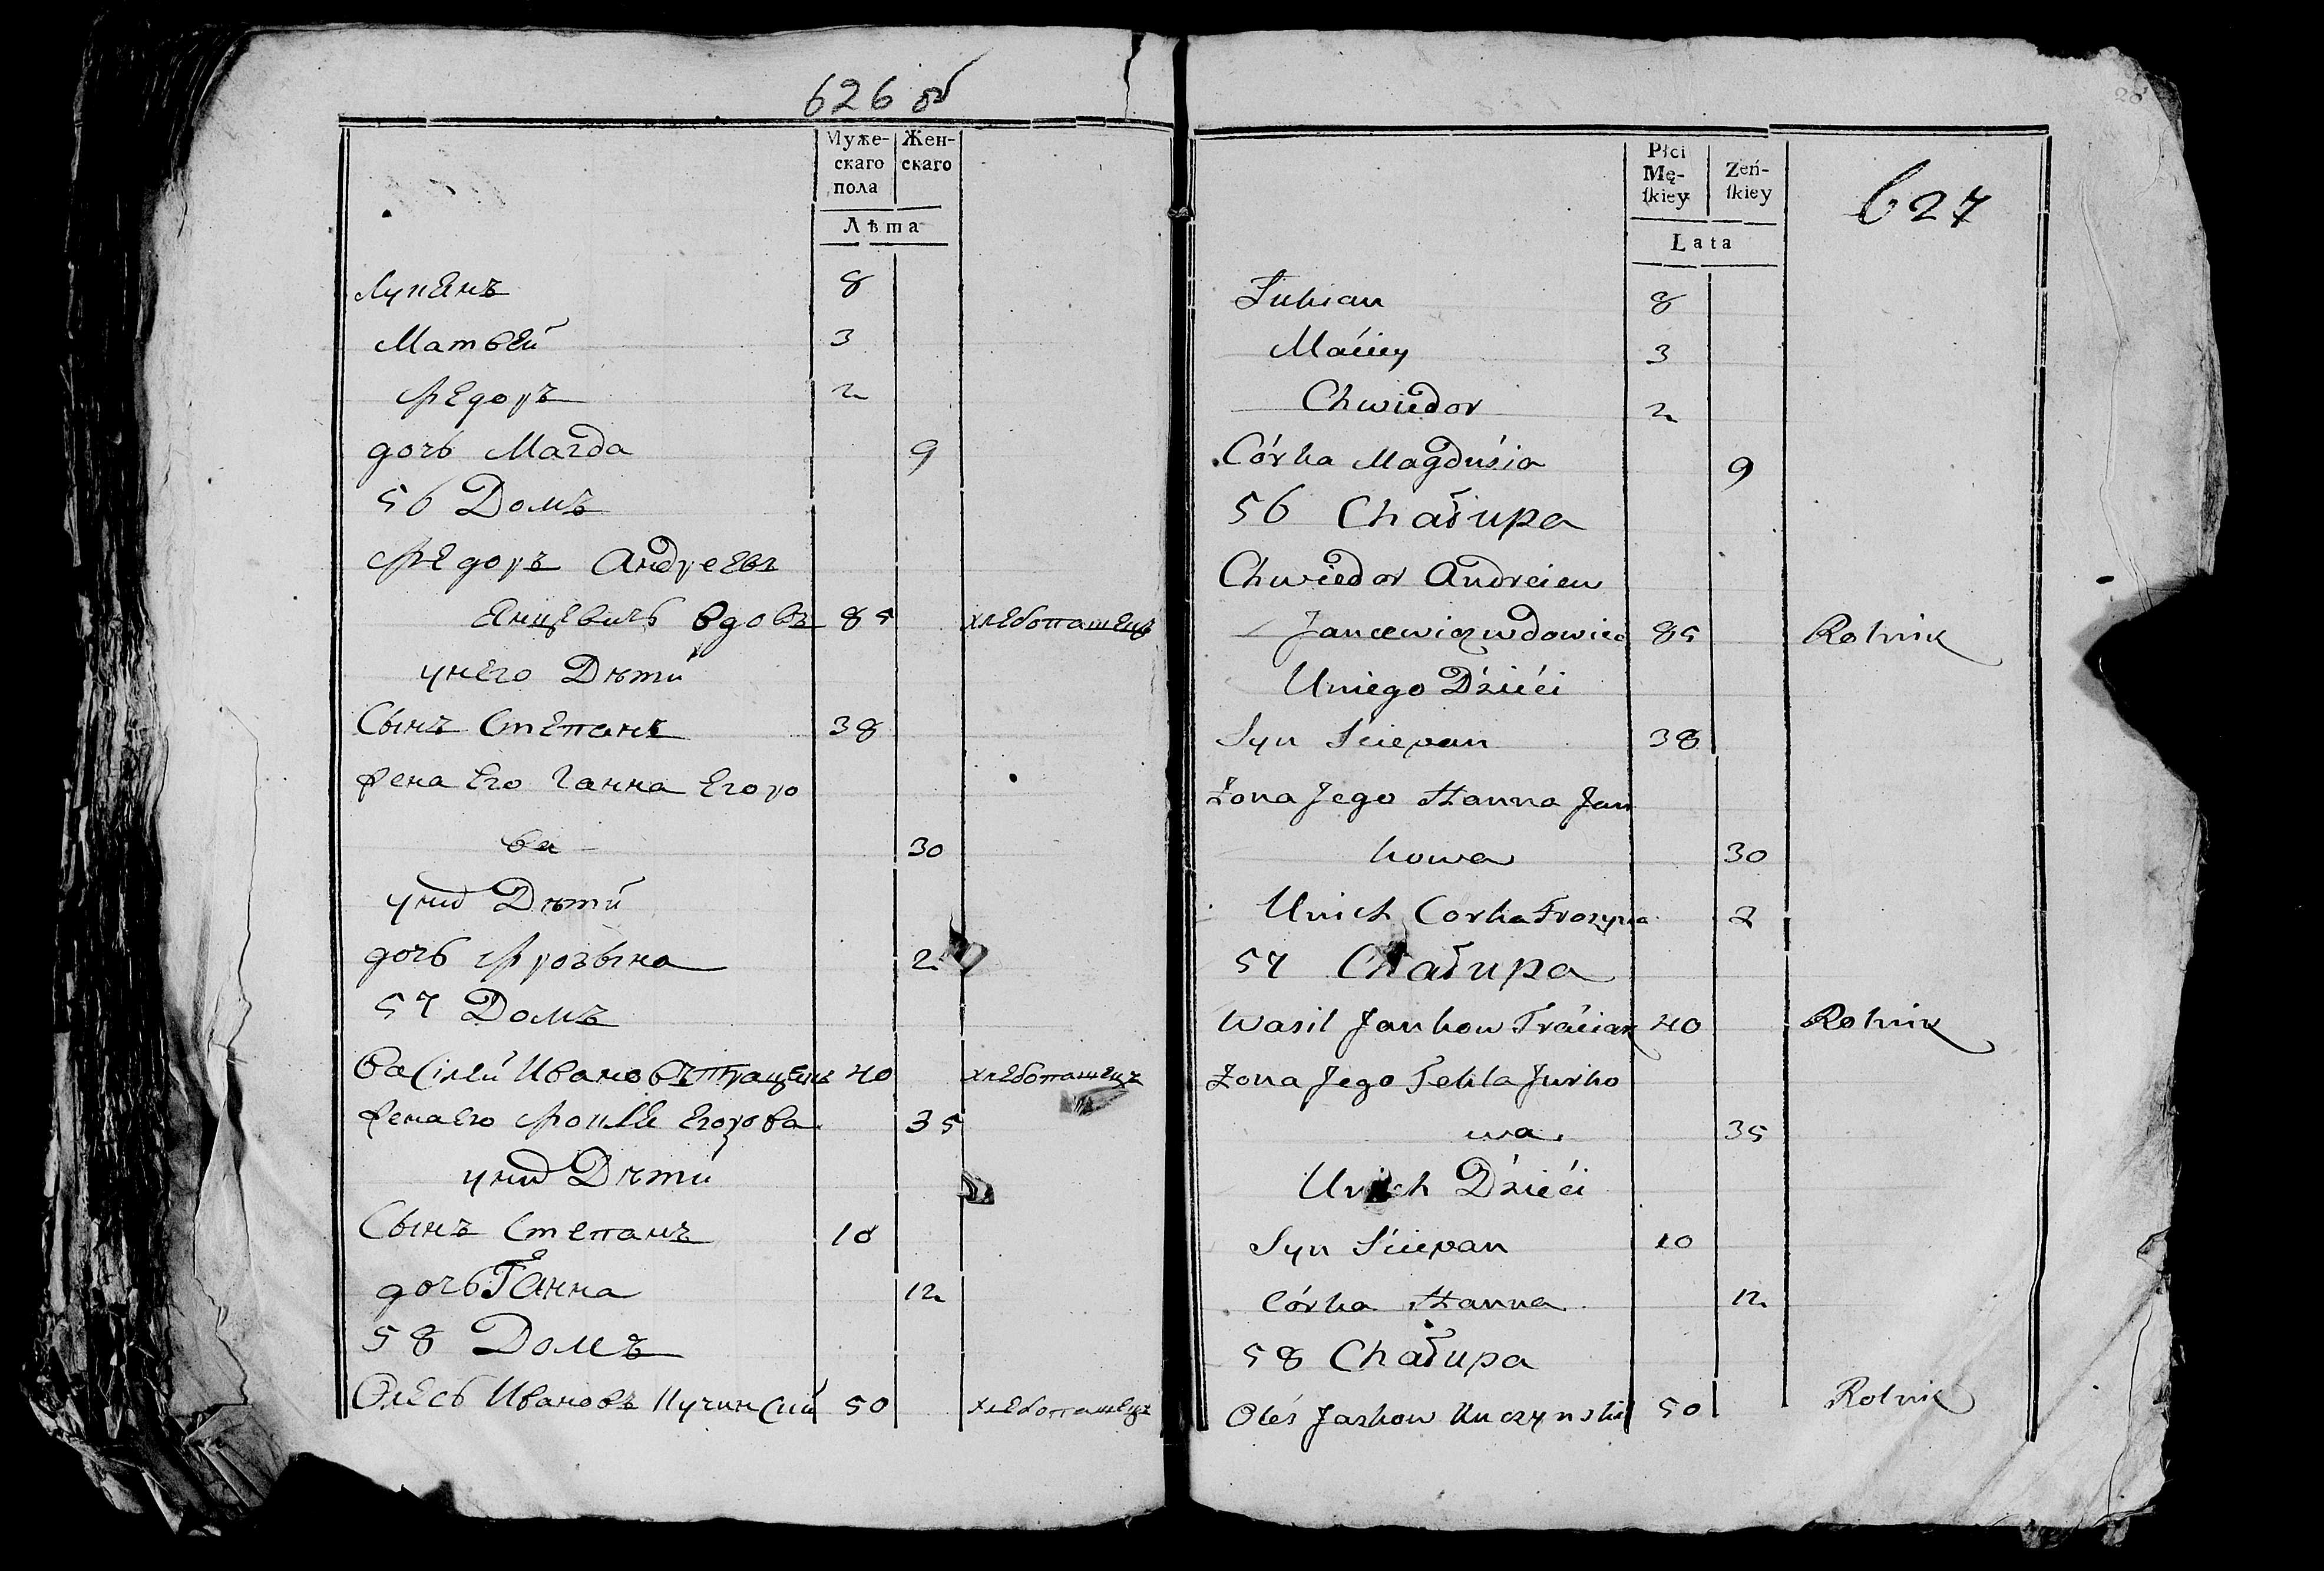 626 об
Муже-
скаго
пола
Жен-
скаго
Лѣта
Лукянъ 8
Матвей 3
Федоръ 2
дочь Магда 9
56 Домъ
Федоръ Андреевъ
Янцевичь вдовъ 85 хлебопашецъ
унего Дѣти
Сынъ Степанъ 38
жена Его Ганна Егоро
ва 30
уних Дѣти
дочь Фрозына 2
57 Домъ
Василей Ивановъ 40 хлебопашецъ
жена Его Егорова 35
уних Дѣти
Сынъ Степанъ 10
дочь Ганна 12
58 Домъ
Олесь Ивановъ Кучинский 50 хлебопашецъ
Płci
Mę-
ſkiey
Zeń-
ſkiey
Lata
627
28
Łukian 8
Maciey 3
Chwiedor 2
Córka Magdusia 9
56 Chałupa
Chwiedor Andreiew
Jancewicz wdowiec 85 Rolnik
Uniego Dzieci
Syn Sciepan 38
Żona Jego Hanna Jur
kowa 30
Unich Corka Frozyna 2
57 Chałupa
Wasil Jankow 40 Rolnik
Żona Jego Tekla Jurko
wa. 35
Unich Dzieci
Syn Sciepan 10
Córka Hanna 12
58 Chałupa
Oleś Jaśkow Kuczynski 50 Rolnik